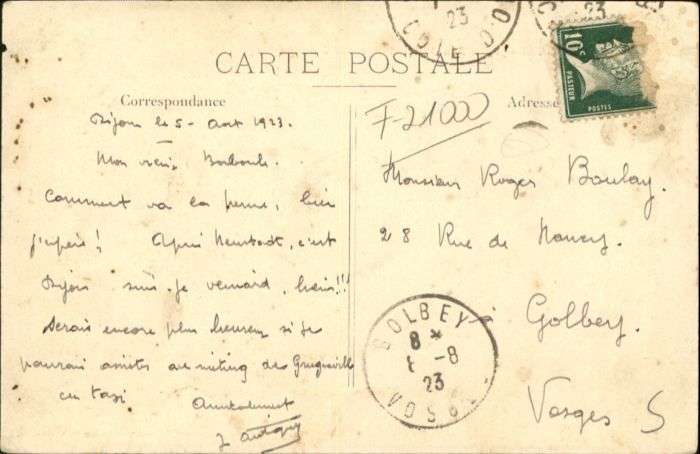 23
COTE D'O
23
CARTE POSTALE
Correspondance
Adresse
10c
PASTEUR
POSTES
F-21000
Dijon le 5 - Aout 1923.
Mon vieux
Comment va la
j'espère! Après Neustadt, c'est
Dijon suis-je veinard, hein!!!
Serais encore plus heureux si je
pourrais assister au meeting des
en taxi
Amicalement
Monsieur Roger Boulay.
28 Rue de Nancy.
à Golbey.
Vosges
GOLBEY
8 *
-8
23
VOSGES